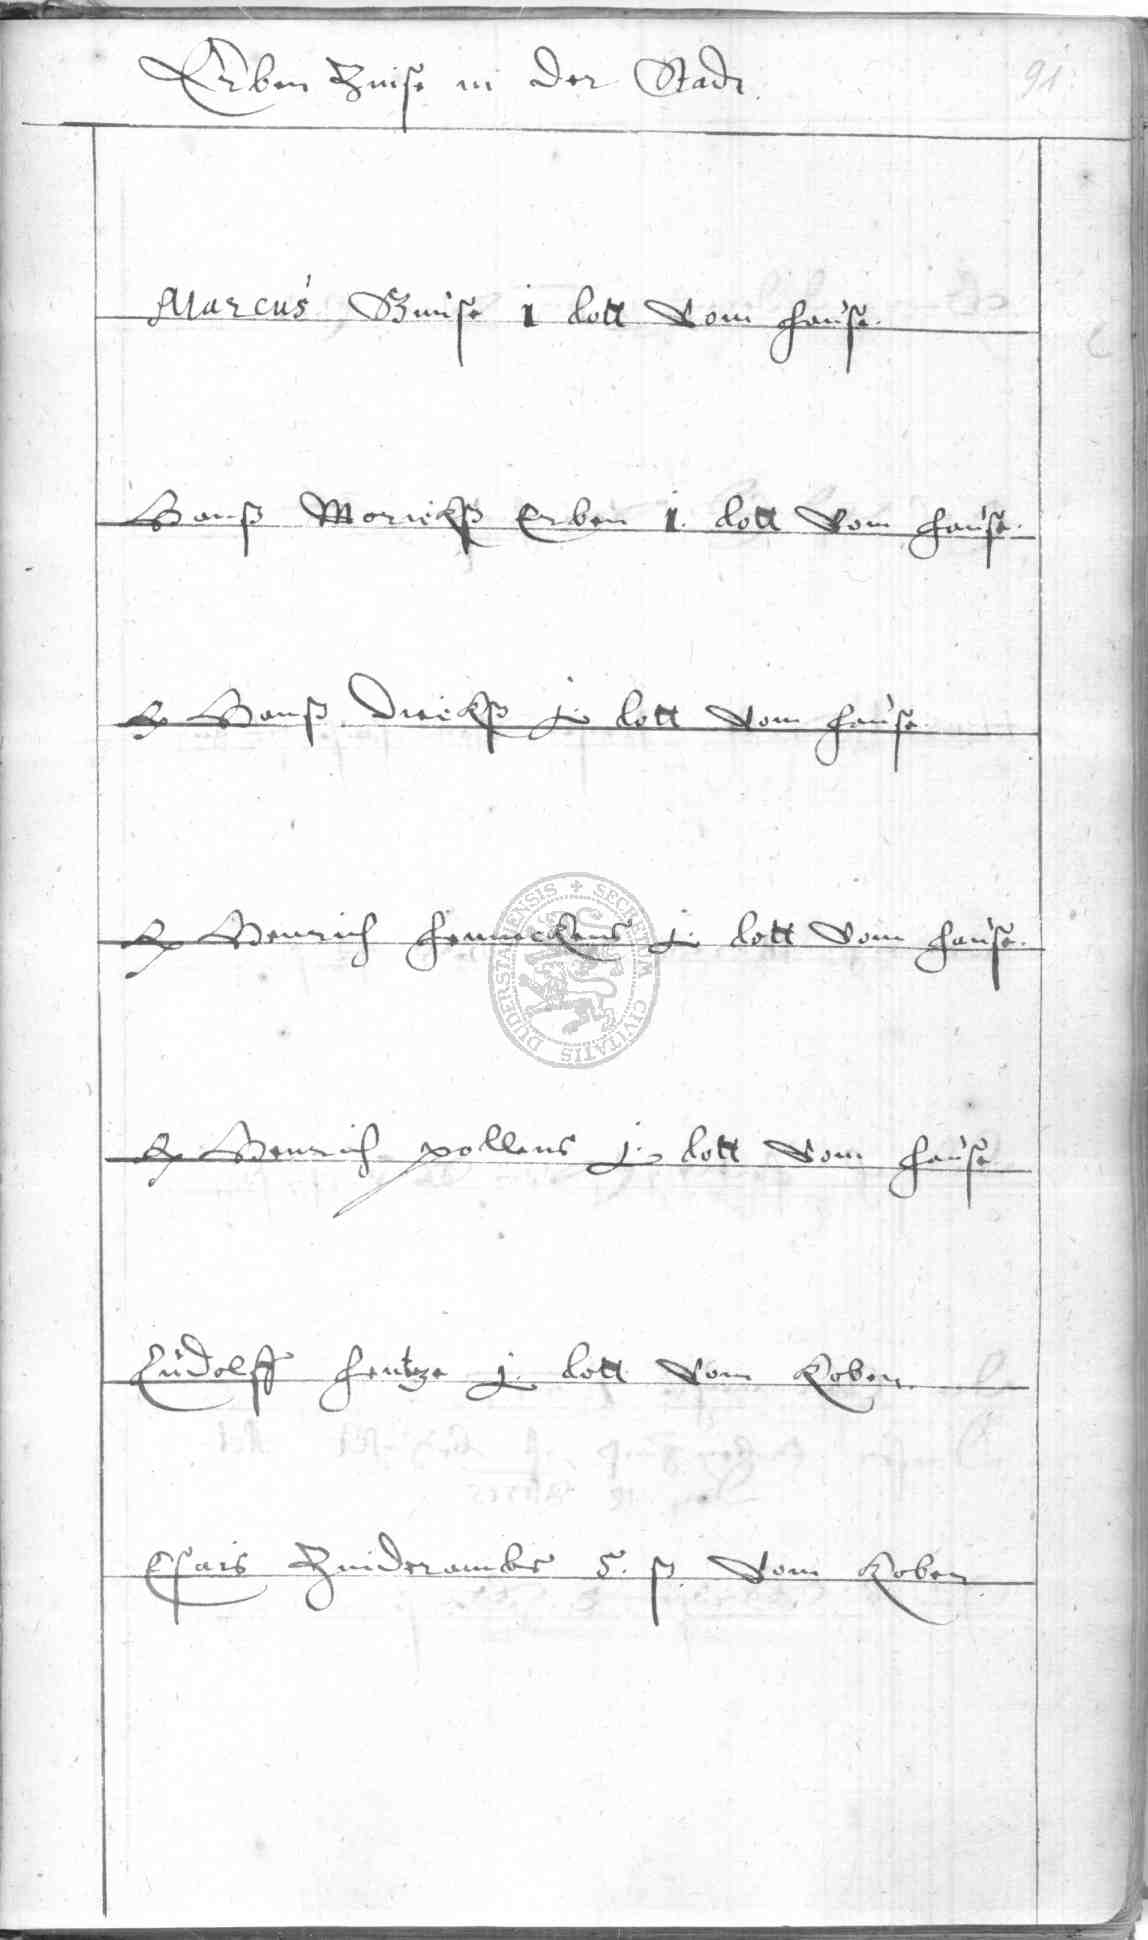 Erben Zinse in der Stadt
91
Marcus Zinse 1 lott vom hause.
Hanß Morickß Erben 1. lott vom hause.
H Hanß Dirickß j lott vom hause
H Henrich henneckens j lott vom hause.
H Henrich pollens j. lott vom hause
Ludolff hentze j lott vom Koben
Esais 5. ß vom Koben
SECRETUM CIVITATIS DUDERSTATENSIS